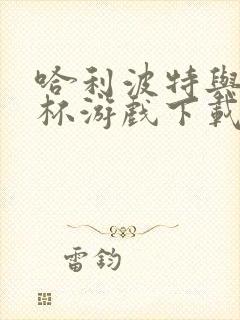 哈利波特與
杯游戲下載
雷鈞